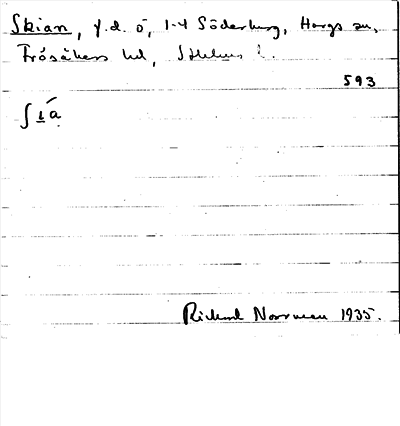 Skian, f.d. ö, 1-4 Söderby, Hargs sn,
Frösåkers hd, Sthlms l.
593
ʃɩ́a̤
Rickard Norrman 1935.